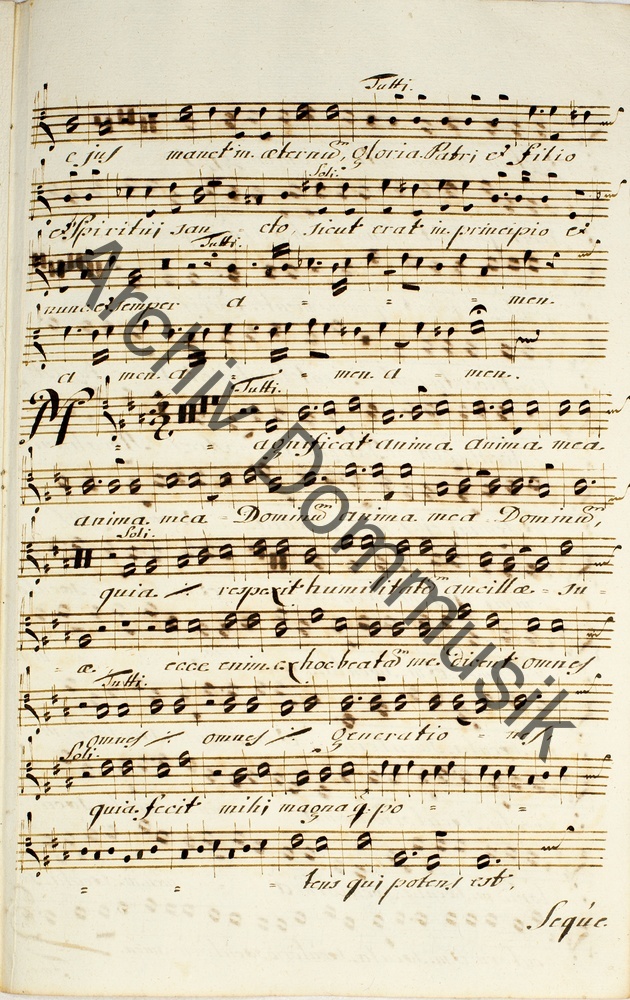 Tutti.
ejus manet in æternũ, Gloria Patri et Filio
Soli.
et Spiritui san - cto, sicut erat in principio et
Tutti.
nunc et semper a - - - men.
a men. a - men. a - men.
Tutti.
Magnificat anima. anima mea.
anima. mea - Dominũ anima. mea Dominũ,
Soli.
quia ·/· respexit humilitatẽ ancillæ - su -
æ. ecce enim ex hoc beatã me dicent omnes
Tutti.
omnes ·/· omnes ·/· generatio - nes
Soli.
quia. fecit mihi magna q. po - -
- - - tens qui potens est,
Seque.
Archiv Dommusik